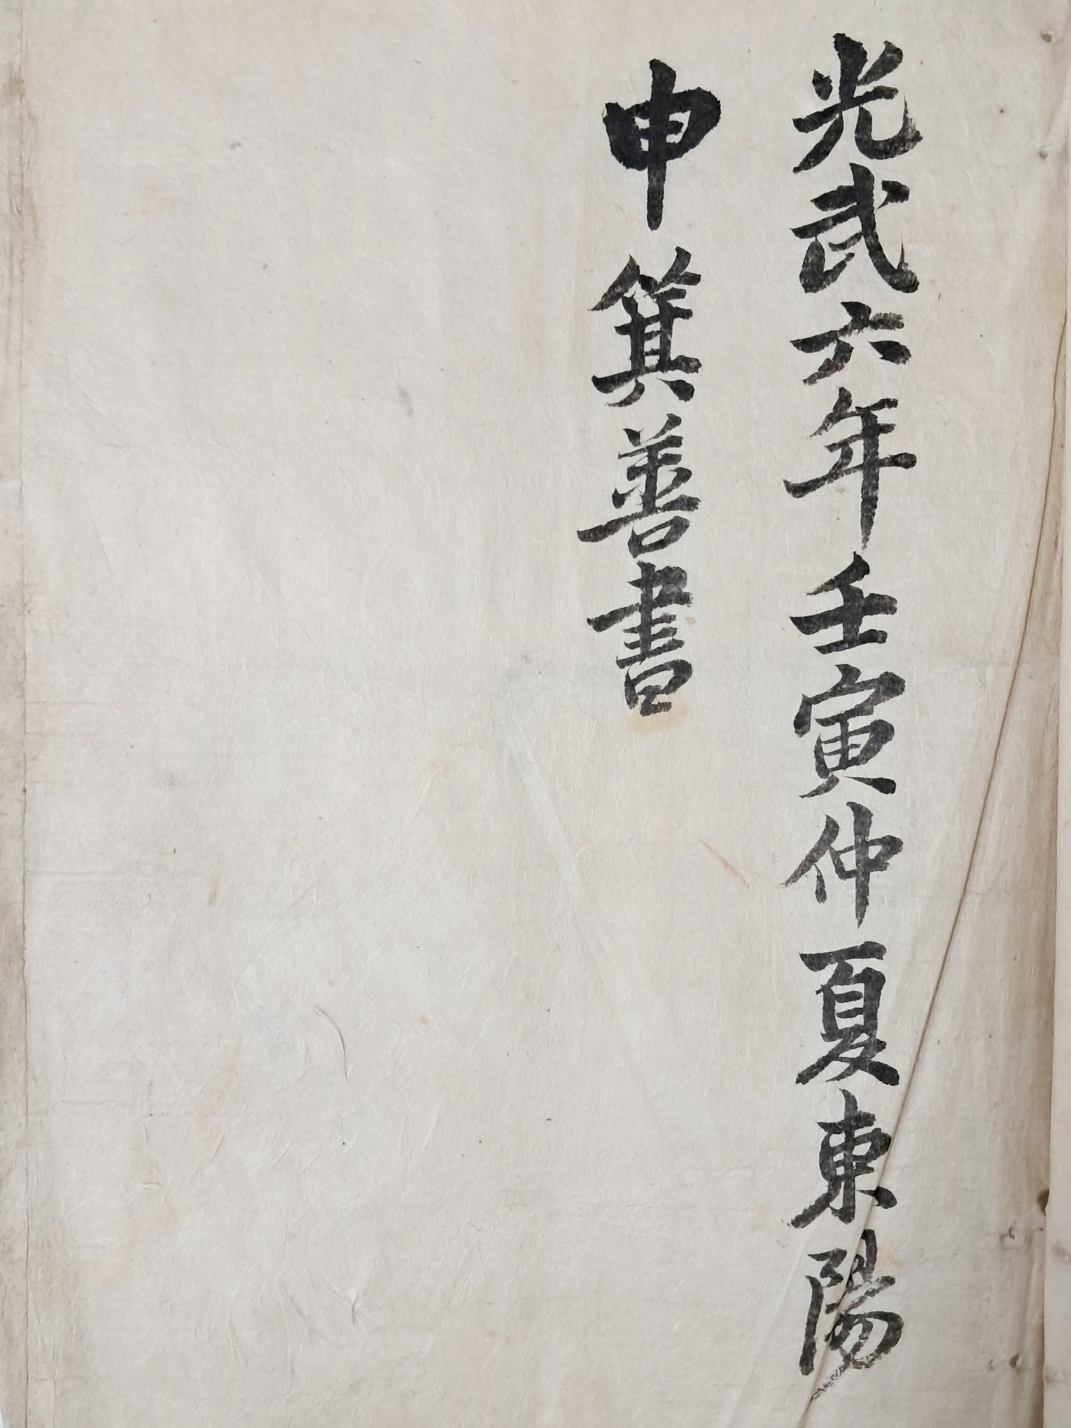 光武六年壬寅仲夏東陽
申箕善書